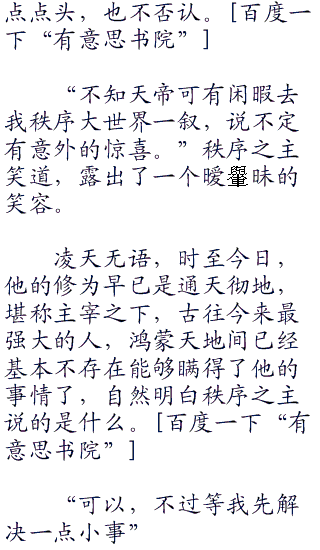 点点头，也不否认。[百度一
下“有意思书院”]
“不知天帝可有闲暇去
我秩序大世界一叙，说不定
有意外的惊喜。”秩序之主
笑道，露出了一个暧昧的
笑容。
凌天无语，时至今日，
他的修为早已是通天彻地，
堪称主宰之下，古往今来最
强大的人，鸿蒙天地间已经
基本不存在能够瞒得了他的
事情了，自然明白秩序之主
说的是什么。[百度一下“有
意思书院”]
“可以，不过等我先解
决一点小事”